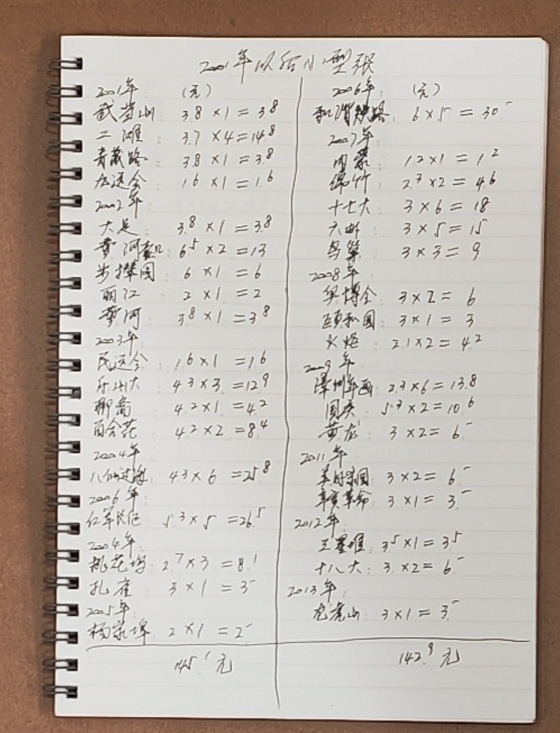 2001年以后小型张
2001年 (元)
武当山 3.8×1=3.8
二滩 3.7×4=14.8
青藏路 3.8×1=3.8
大运会 1.6×1=1.6
2002年
大足 3.8×1=3.8
黄河壶口 6.5×2=13
步辇图 6×1=6
丽江 2×1=2
黄河 3.8×1=3.8
2003年
民运会 1.6×1=1.6
4.3×3=12.9
聊斋 4.2×1=4.2
百合花 4.2×2=8.4
2004年
八仙过海 4.3×6=25.8
2006年
红军长征 5.3×5=26.5
2004年
桃花坞 2.7×3=8.1
孔雀 3×1=3
2005年
杨家埠 2×1=2
145.1元
2006年 (元)
和谐铁路 6×5=30
2007年
内蒙 1.2×1=1.2
绵竹 2.3×2=4.6
十七大 3×6=18
六邮 3×5=15
3×3=9
2008年
奥博会 3×2=6
颐和园 3×1=3
火炬 2.1×2=4.2
2009年
漳州年画 2.3×6=13.8
国庆 5.3×2=10.6
黄龙 3×2=6
2011年
3×2=6
辛亥革命 3×1=3
2012年
王墨堆 3.5×1=3.5
十八大 3×2=6
2013年
龙虎山 3×1=3
142.9元